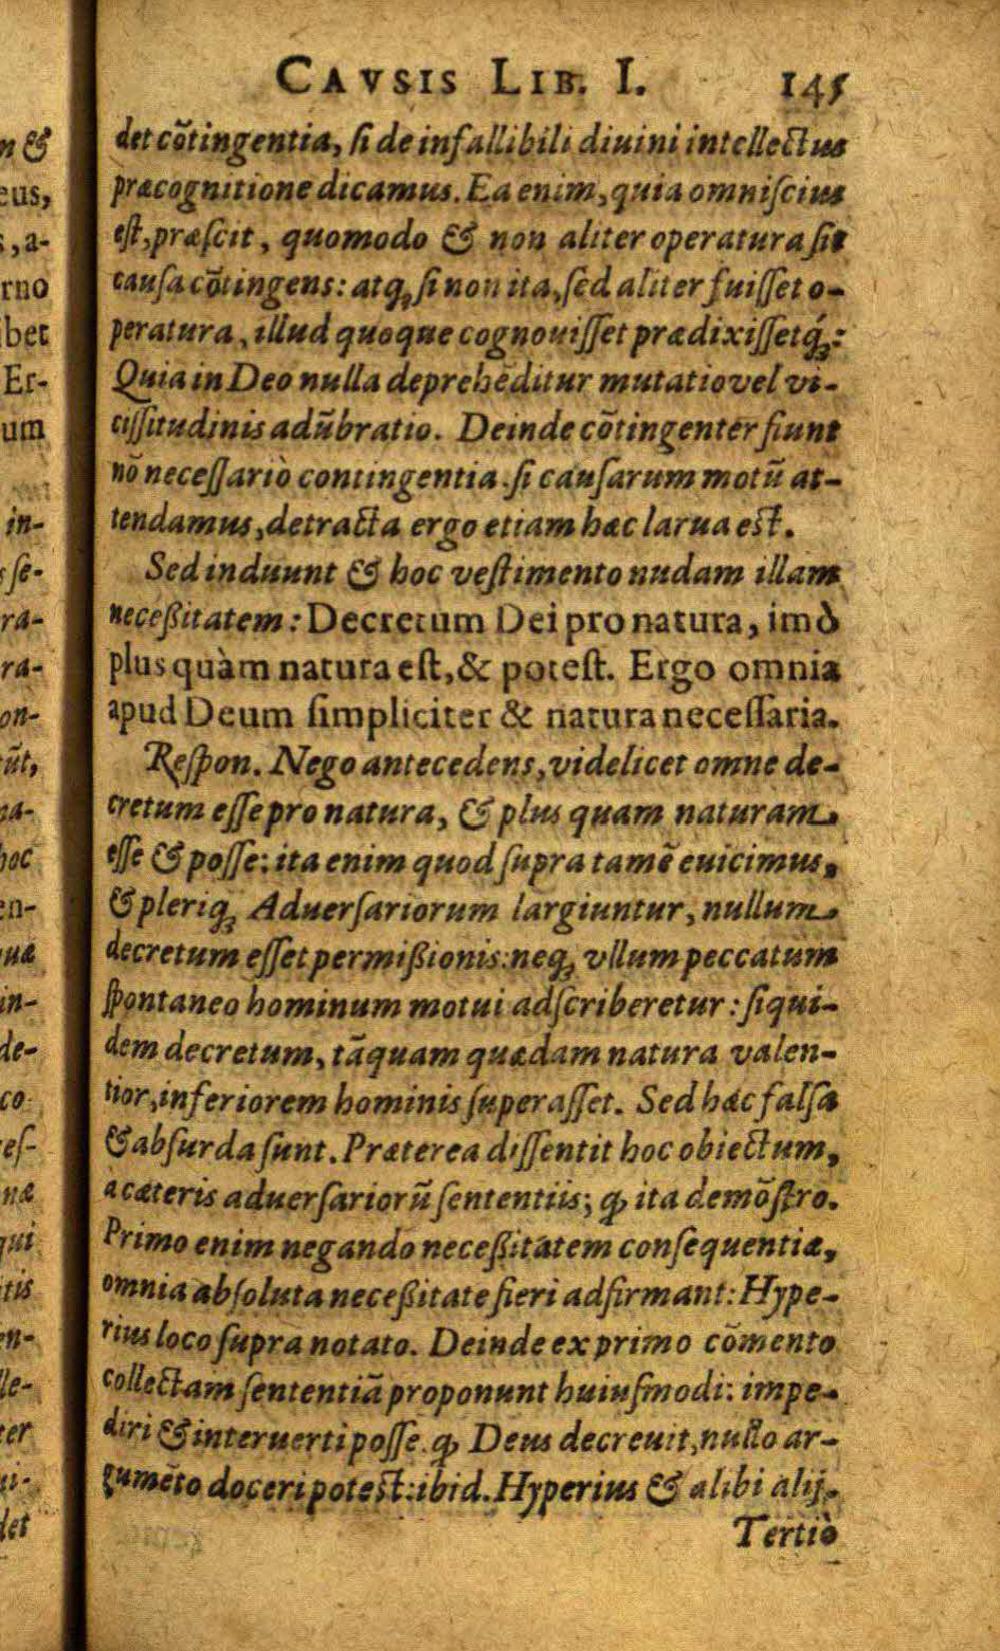 CAVSIS LIB. I. 145
det cõtingentia, ſi de infallibili diuini intellectus
præcognitione dicamus. Ea enim, quia omniſcius
eſt, præſcit, quomodo & non aliter operatura ſit
cauſa cõtingens: atq́; ſi non ita, ſed aliter fuiſſet o-
peratura, illud quoque cognouiſſet prædixiſſetq́;:
Quia in Deo nulla deprehẽditur mutatio vel vi-
ciſſitudinis adũbratio. Deinde cõtingenter fiunt
nõ neceſſariò contingentia ſi cauſarum motũ at-
tendamus, detracta ergo etiam hæc larua eſt.
Sed induunt & hoc veſtimento nudam illam
neceßitatem: Decretum Dei pro natura, imò
plus quàm natura eſt, & poteſt. Ergo omnia
apud Deum ſimpliciter & natura neceſſaria.
Reſpon. Nego antecedens, videlicet omne de-
cretum eſſe pro natura, & plus quam naturam
eſſe & poſſe: ita enim quod ſupra tamẽ euicimus,
& pleriq; Aduerſariorum largiuntur, nullum
decretum eſſet permißionis: neq; vllum peccatum
ſpontaneo hominum motui adſcriberetur: ſiqui-
dem decretum, tãquam quædam natura valen-
tior, inferiorem hominis ſuperaſſet. Sed hæc falſa
& abſurda ſunt. Præterea diſſentit hoc obiectum,
a cæteris aduerſariorũ ſententiis; ꝙ ita demõſtro.
Primo enim negando neceßitatem conſequentiæ,
omnia abſoluta neceßitate fieri adfirmant: Hype-
rius loco ſupra notato. Deinde ex primo cõmento
collectam ſententiã proponunt huiuſmodi: impe-
diri & interuerti poſſe ꝙ Deus decreuit, nullo ar-
gumẽto doceri poteſt: ibid. Hyperius & alibi alij.
Tertiò
n &
eus,
, a-
rno
bet
Er-
um
in-
ſe-
ra-
ra-
on-
ũt,
na-
hoc
en-
uæ
in-
de-
co
eſ-
næ
qui
tis
en-
le-
ter
ui-
det